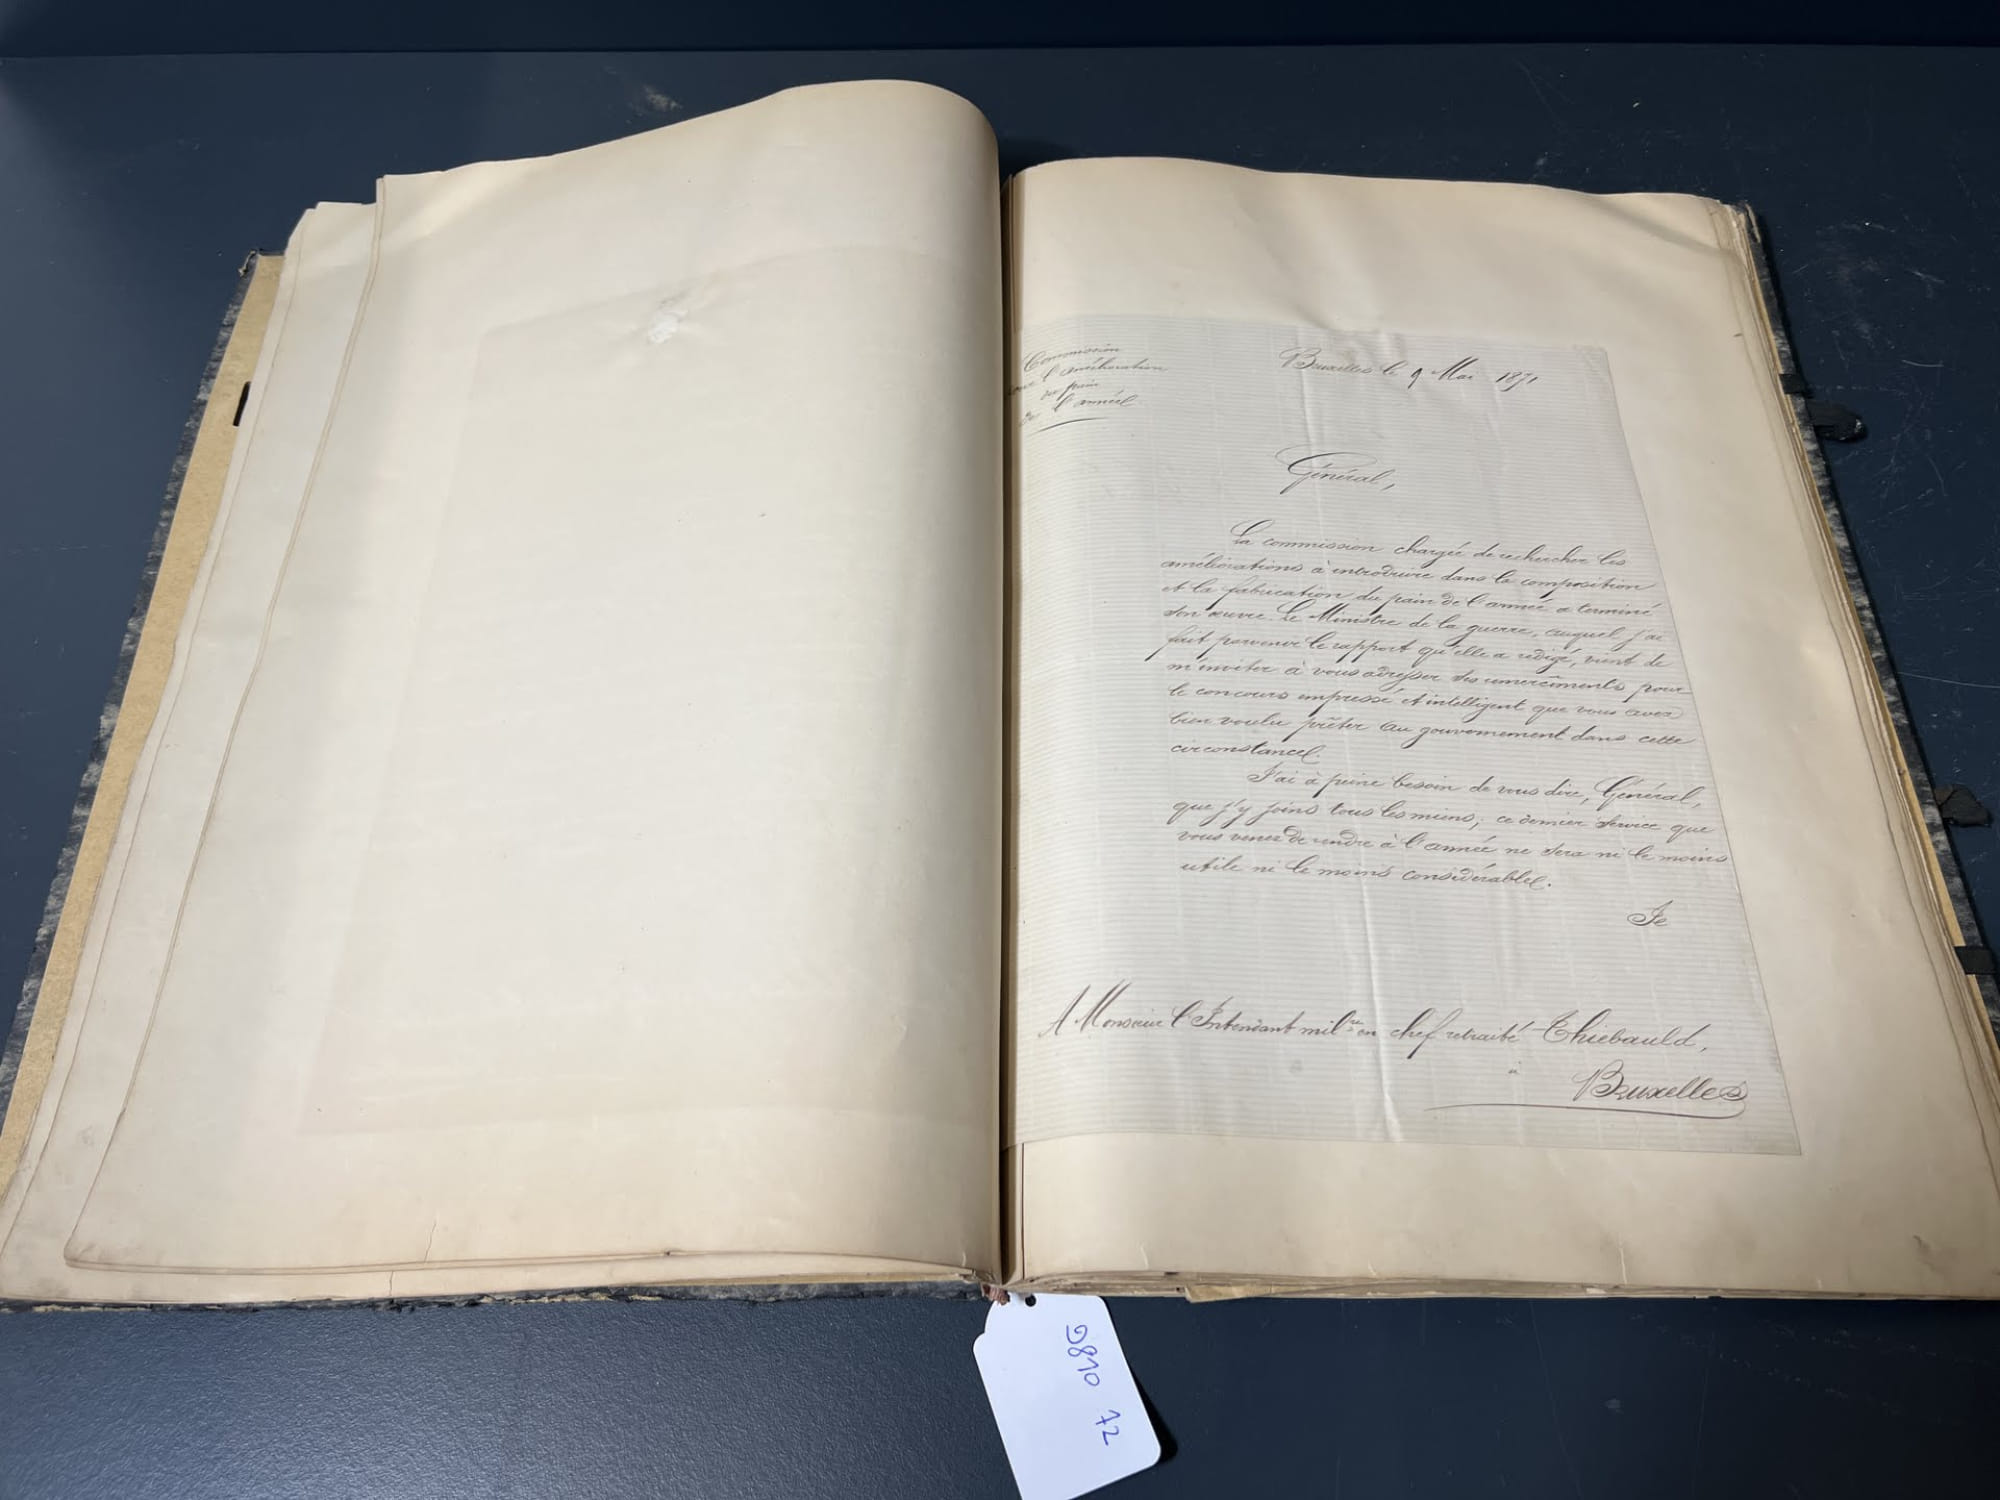 Commission
pour l'amélioration
du pain
de l'armée
Bruxelles le 9 Mai 1871
Général,
La commission chargée de rechercher les
améliorations à introduire dans la composition
et la fabrication du pain de l'armée a terminé
son œuvre. Le Ministre de la guerre, auquel j'ai
fait parvenir le rapport qu'elle a rédigé, vient de
m'inviter à vous adresser ses remercîments pour
le concours empressé et intelligent que vous avez
bien voulu prêter au gouvernement dans cette
circonstance.
J'ai à peine besoin de vous dire, Général,
que j'y joins tous les miens; ce dernier service que
vous venez de rendre à l'armée ne sera ni le moins
utile ni le moins considérable.
Je
A Monsieur l'Intendant milre en chef retraité Thiebauld,
à
Bruxelles
G810 72